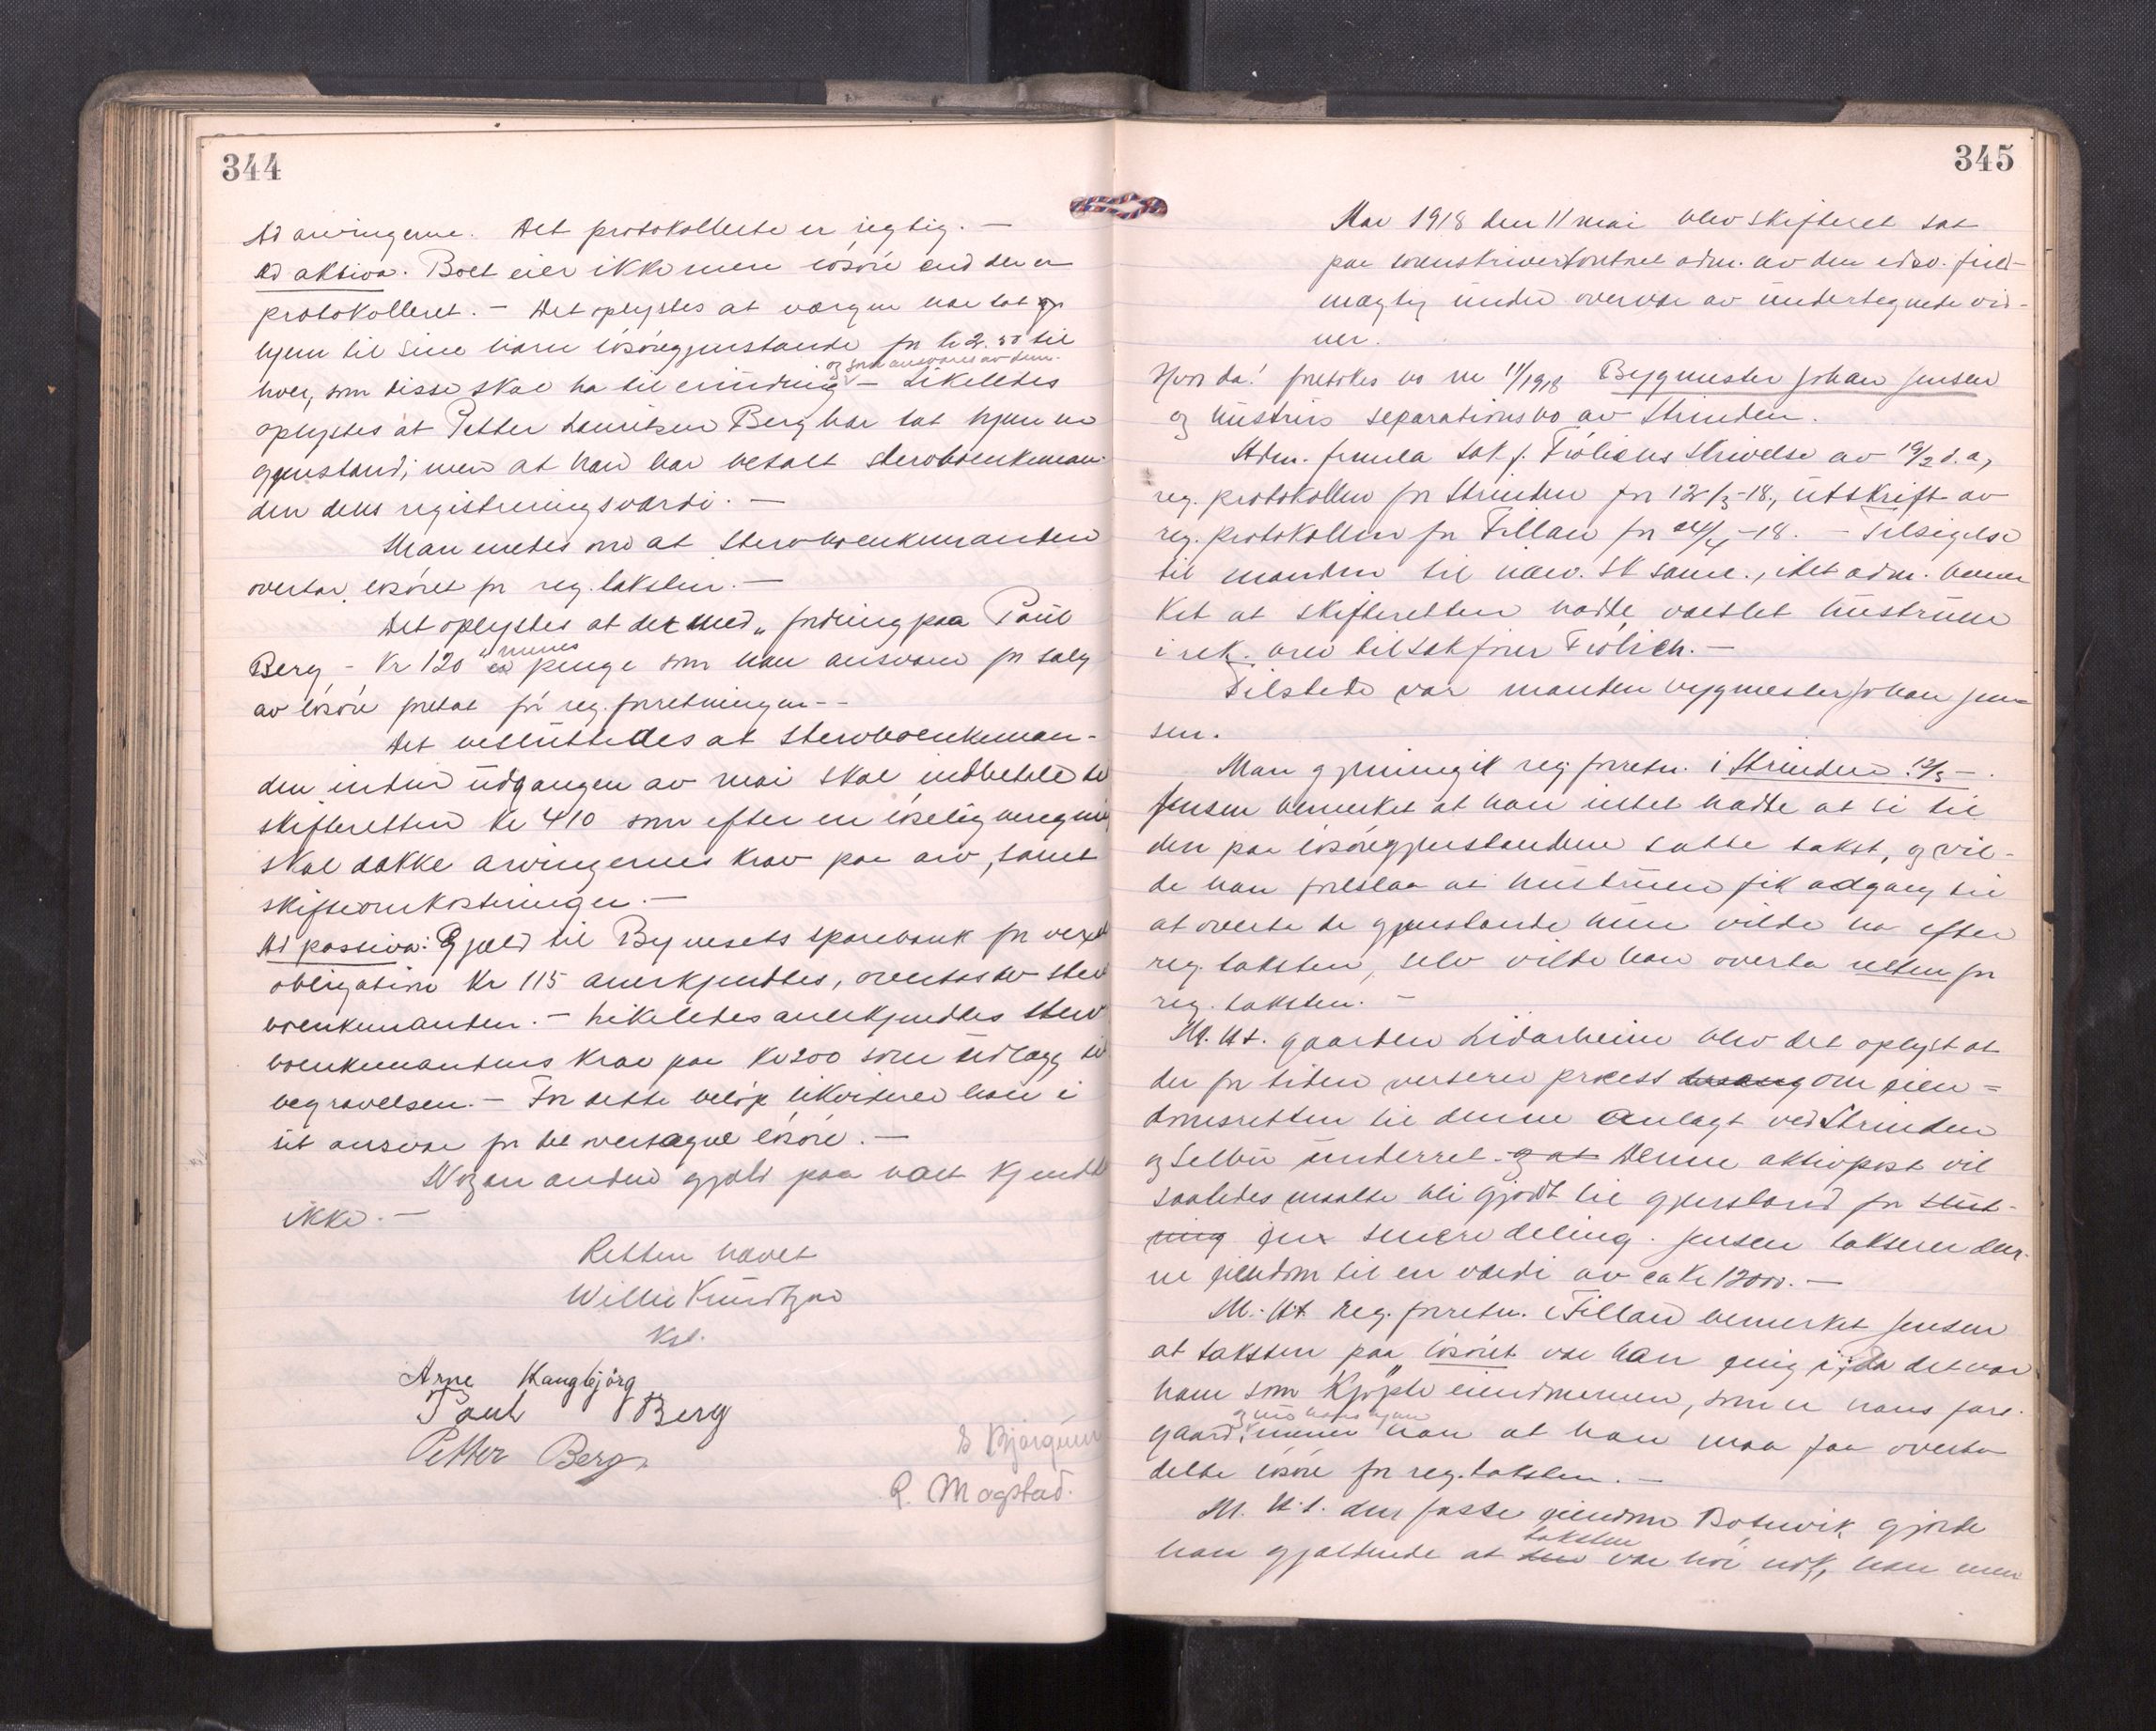 344
Ad arvingerne. Det protokollerte er rigtig. —
Ad aktiva. Boet eier ikke mere løsøre end der er
protokolleret. — Det oplystes at vergen har tat
hjem til sine barn løsøregjenstande for kr 2.50 til
og som ansvares av dem.
hver, som disse skal ha til erindring — Likeledes
oplystes at Petter Lauritsen Berg har tat hjem en
gjenstand; men at han har betalt sterboenkeman-
den dens registreringsværdi. —
Man enedes om at sterboenkemanden
overtar løsøret for reg. taksten. —
Det oplystes at det med „fordring paa Paul
menes
Berg - Kr 120" er penge som han ansvarer for salg
av løsøre foretat før reg. forretningen --
Det besluttedes at sterboenkeman-
den inden udgangen av mai skal indbetale til
skifteretten kr 410 som efter en løselig beregning
skal dække arvingernes krav paa arv, samt
skifteomkostninger. —
Ad passiva: Gjæld til Bynesets sparebank for vexel
obligation kr 115 anerkjendtes, overtas av sterv
boenkemanden. — Likeledes anerkjendtes sterv
boenkemandens krav paa kr 200 som utlæg til
begravelsen. — For dette beløp likviderer han i
sit ansvar for det overtagne løsøre. —
Nogen anden gjæld paa boet kjendtes
ikke. —
Retten hævet
Willie Knudtzon
Kst.
Arne Haugbjørg
Paul Berg
Petter Berg
S Bjørgum
R. Mogstad.
345
Aar 1918 den 11 mai blev skifteret sat
paa sorenskriverkontoret adm. av den edsv. fuld-
mægtig under overvær av undertegnede vid-
ner.
Hvorda! foretokes bo nr 11/1918 Bygmester Johan Jensen
og hustrus separationsbo av Strinden.
Adm. fremla sakf. Frölichs skrivelse av 19/2 d.a,
reg. protokollen for Strinden for 12/3-18, utskrift av
reg. protokollen for Fillan for 24/4-18. — Tilsigelse
til manden til nærv. sk. saml., idet adm. bemer
ket at skifteretten hadde varslet hustruen
i rek. brev til sakfører Frölich. —
Tilstede var manden bygmester Johan Jen-
sen.
Man gjennemgik reg. forretn. i Strinden 12/3 —.
Jensen bemerket at han intet hadde at si til
den paa løsøregjenstandene satte takst, og vil-
de han foreslaa at hustruen fik adgang til
at overta de gjenstande hun vilde ha efter
reg. taksten, selv vilde han overta resten for
reg. taksten. —
M. H. t. gaarden Lidarheim blev det oplyst at
der for tiden verserer process om eien-
domsretten til denne anlagt ved Strinden
og Selbu underret. og at Denne aktivpost vil
saaledes maatte bli gjort til gjenstand for slut-
ning for senere deling. Jensen takserer den-
ne eiendom til en værdi av ca kr 12000. —
M. H. t. reg. forretn. i Fillan bemerket Jensen
at taksten paa løsøret var han enig i; da det var
ham som kjøpte eiendommen, som er hans fars-
og nu hans hjem
gaard, mener han at han maa faa overta
dette løsøre for reg. taksten. —
M. H. t. den faste eiendom Botnvik gjorde
taksten
han gjældende at den var høi nok, han men